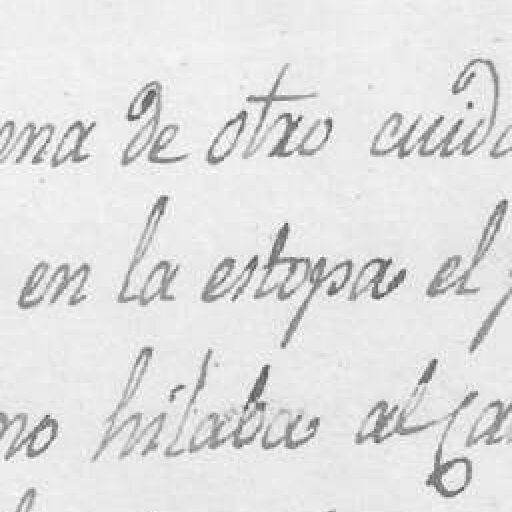 ena de otro cuida
en la estopa el
no hilaba alça